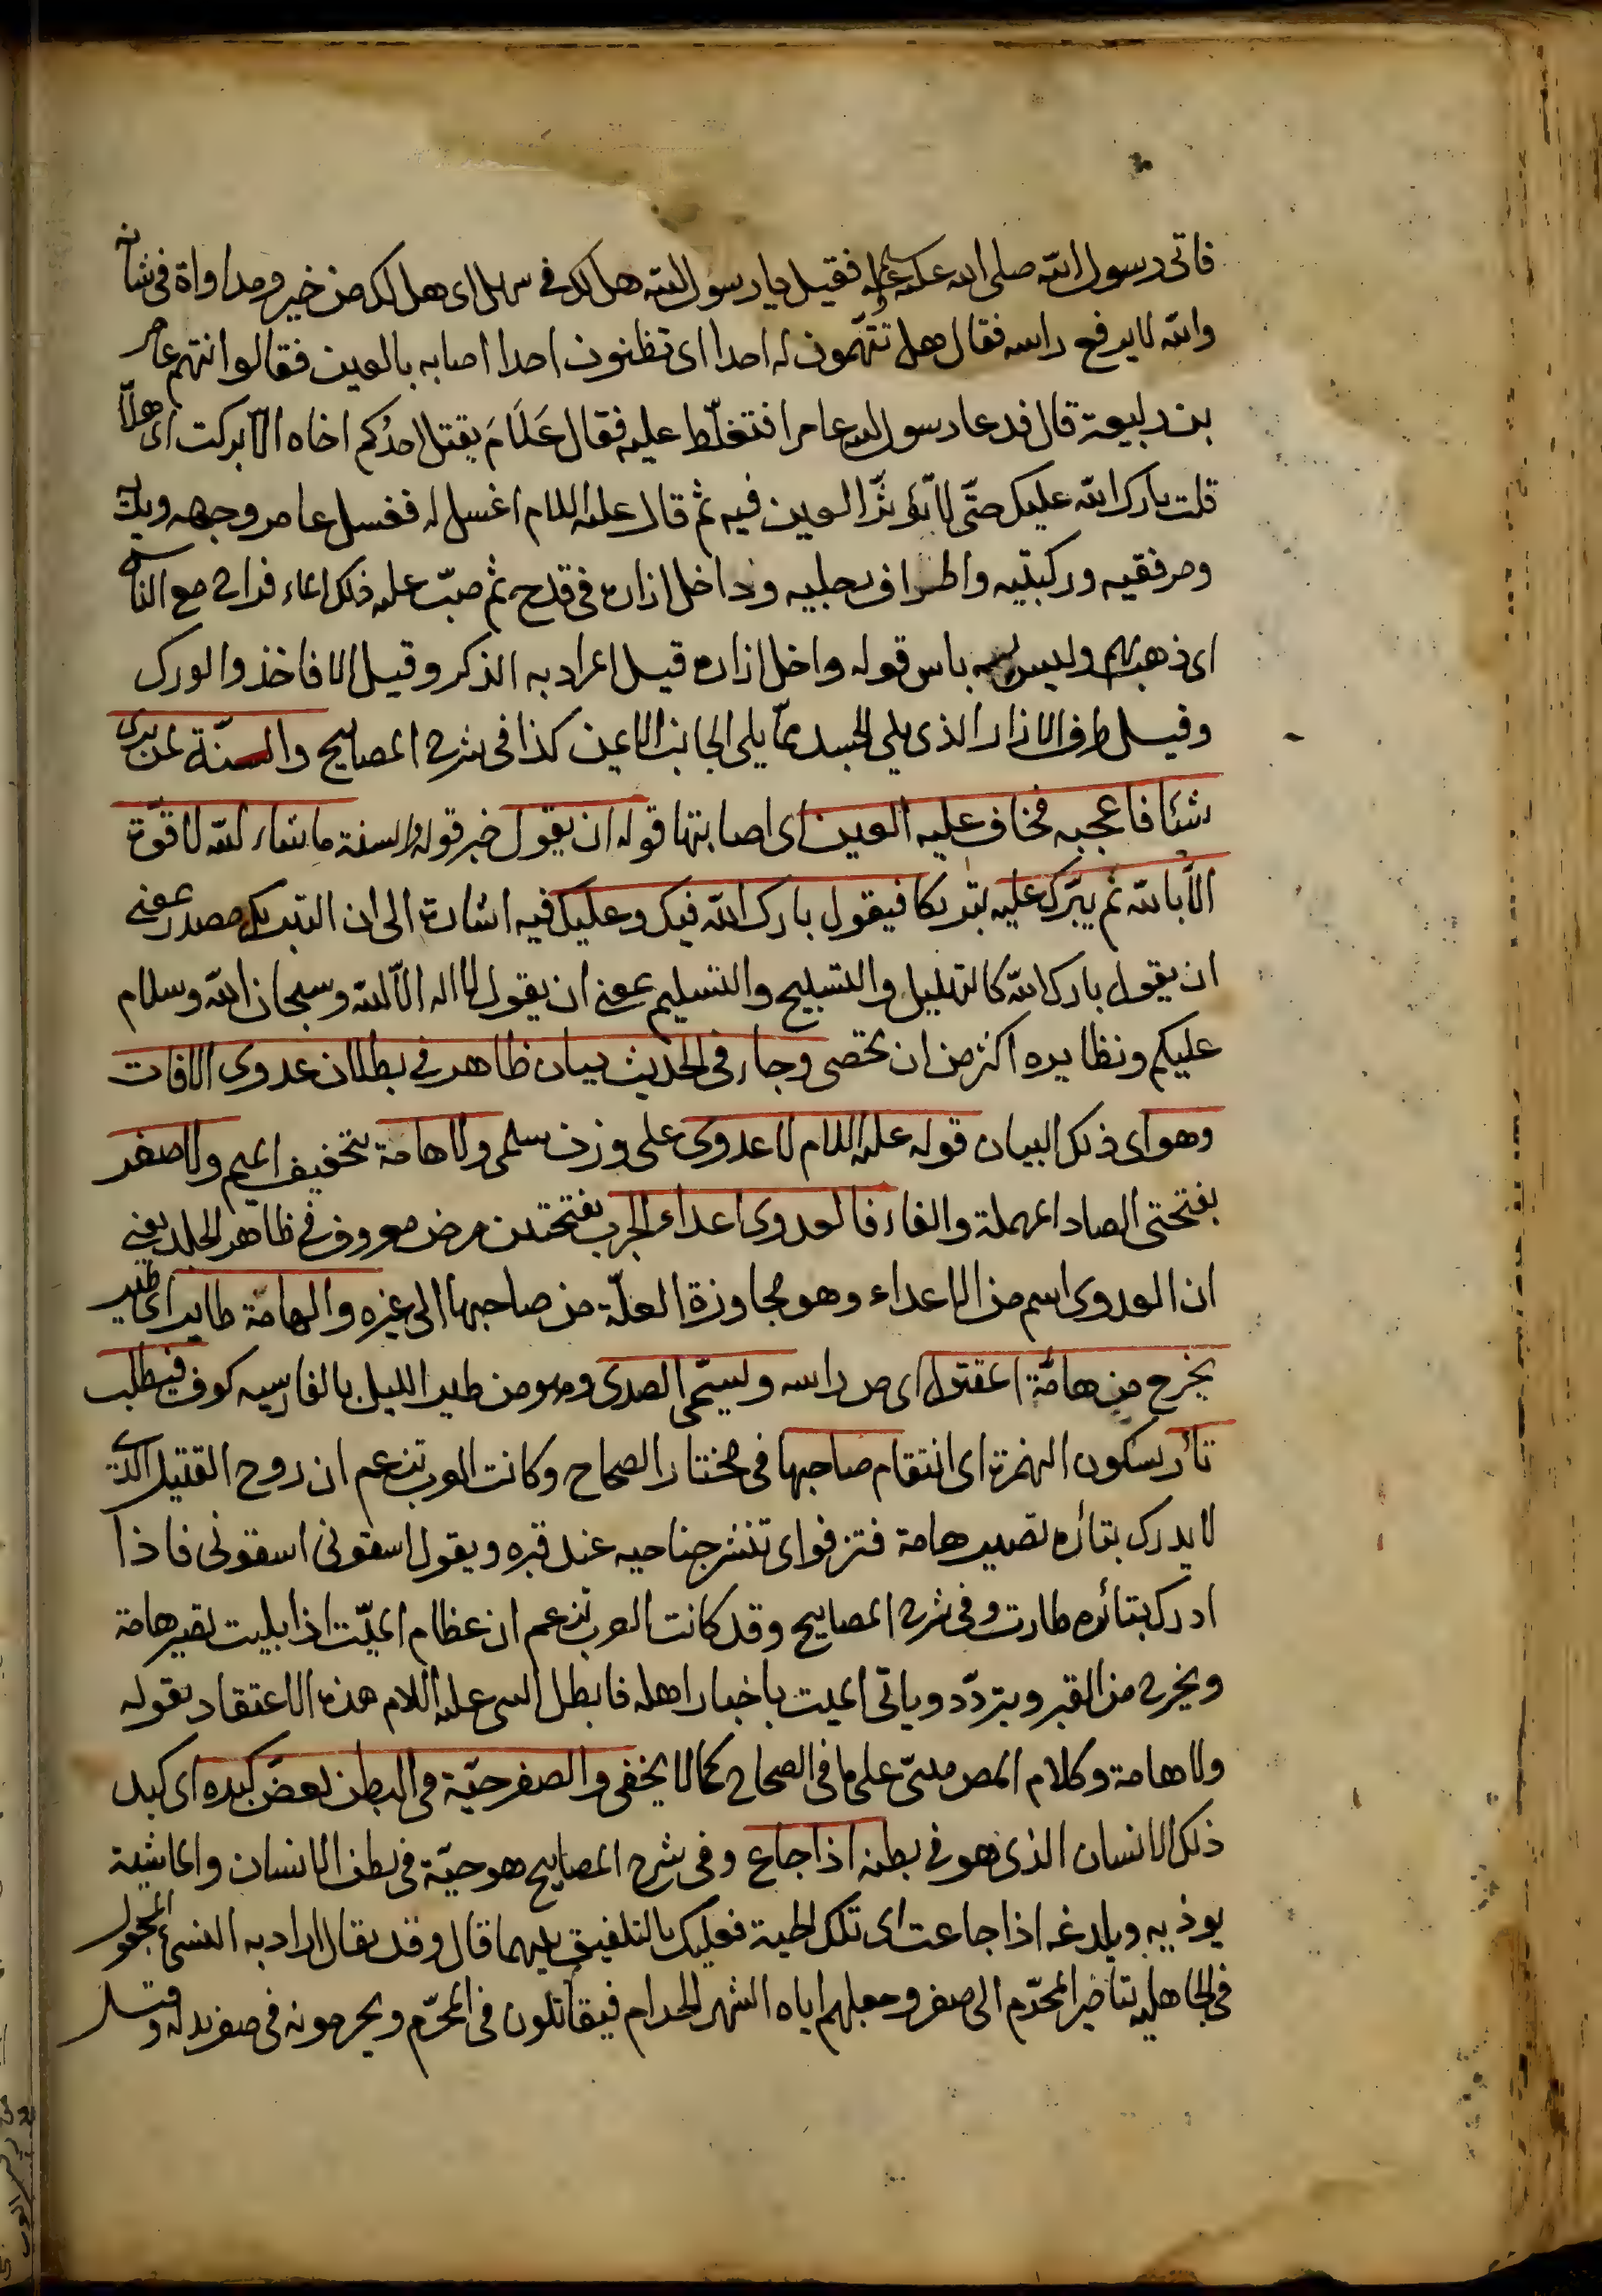 فاتى رسول الله صلى الله عليه وسلم فقيل يا رسول الله هل لك فى سهل اى هل لك من خير ومداواة فى شانه
والله لا يرفع راسه فقال هل تتّهمون له احدا اى تظنون احدا اصابه بالعين فقالوا نتهم عامر
بن ربيعة قال فدعا رسول الله عامرا فتغلّظ عليه فقال عَلَامَ يقتل احدُكم اخاه الّا بركت اى هلّا
قلت بارك الله عليك حتّى لا تؤثّر العين فيه ثم قال عليه السلام اغسل له فغسل عامر وجهه ويديه
ومرفقيه وركبتيه واطراف رجليه وداخل ازاره فى قدح ثم صبّ عليه ذلك الماء فراح مع الناس
اى ذهب وليس به باس قوله داخل ازاره قيل المراد به الذكر وقيل الافاخذ والورك
وقيل طرف الازار الذى يلي الجسد ممّا يلى الجانب الايمن كذا فى شرح المصابيح والسنّة لمن يرى
شئا فاعجبه فخاف عليه العين اى اصابتها قوله ان يقول خبر قوله والسنة ما شاء الله لا قوّة
الّا بالله ثم يبّرك عليه تبريكا فيقول بارك الله فيك وعليك فيه اشارة الى ان التبريك مصدر بمعنى
ان يقول بارك الله كالتهليل والتسبيح والتسليم بمعنى ان يقول لا اله الّا الله وسبحان الله وسلام
عليكم ونظايره اكثر من ان تحصى وجاء فى الحديث بيان ظاهر فى بطلان عدوى الافات
وهو اى ذلك البيان قوله عليه السلام لا عدوى على وزن سلمى ولا هامة بتخفيف الميم ولا صفر
بفتحتى الصاد المهملة والفاء فالعدوى اعداء الجرب بفتحتين مرض معروف فى ظاهر الجلد يعنى
ان العدوى اسم من الاعداء وهو مجاوزة العلّة من صاحبها الى غيره والهامّة طاير اى طير
يخرج من هامّة المقتول اى من راسه ويسمّى الصدى وهو من طير الليل بالفارسيه كوف فيطلب
ثأر بسكون الهمزة اى انتقام صاحبها فى مختار الصحاح وكانت العرب تزعم ان روح القتيل الذى
لا يدرك بثاره تصير هامة فتزفوا اى تنشر جناحيه عند قبره ويقول اسقونى اسقونى فاذا
ادرك بثأره طارت وفى شرح المصابيح وقد كانت العرب تزعم ان عظام الميّت اذا بليت تصير هامة
ويخرج من القبر ويتردّد وياتى الميت باخبار اهله فابطل النبى عليه السلام هذه الاعتقاد بقوله
ولا هامة وكلام المص مبنىّ على ما فى الصحاح كما لا يخفى والصفر حيّة فى البطن تعضّ كبده اى كبد
ذلك الانسان الذى هو فى بطنه اذا جاع وفى شرح المصابيح هو حيّة فى بطن الانسان والماشية
يوذيه ويلدغه اذا جاعت اى تلك الحية فعليك بالتلفيق بينهما قال وقد يقال اراد به النسئ المجعول
فى الجاهلية بتاخير المحرّم الى صفر وجعلهم اياه الشهر الحرام فيقاتلون فى المحرّم ويحرمونه فى صفر بدله وقيل